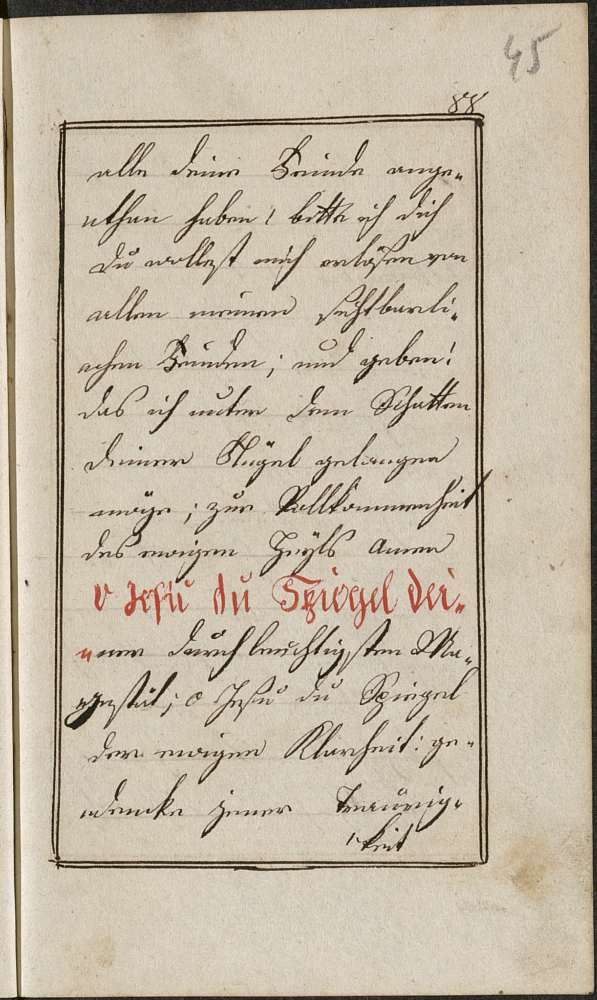 45
88
alle deine Feinde ange„
nthan haben! bitte ich dich
du wollest mich erlösen von
allen meinen sichtbarli„
nchen Feinden; und geben!
das ich unter dem Schatten
deiner Flügel gelangen
möge; zur Vollkommenheit
des ewigen Heÿls Amen
O Jesu du Spiegel dei„
nner durchleuchtigsten Ma„
jestät; o Jesu du Spiegel
der ewigen Klarheit: ge„
ndencke jener Traurig„
keit